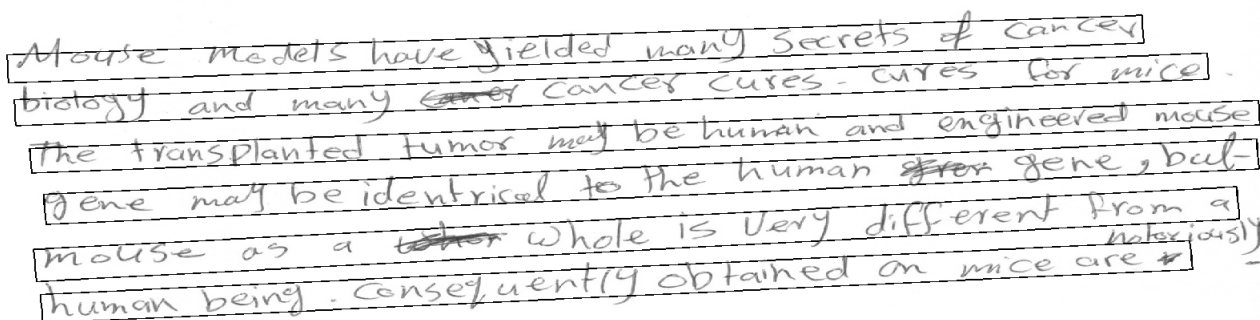 Mouse models have yielded many secrets of cancer
biology and many cancer cures. cures for mice.
The transplanted tumor may be human and engineered mouse
gene may be identrical to the human gene, but
mouse as a whole is very different from a
human being. Consequently obtained on mice are notoriously